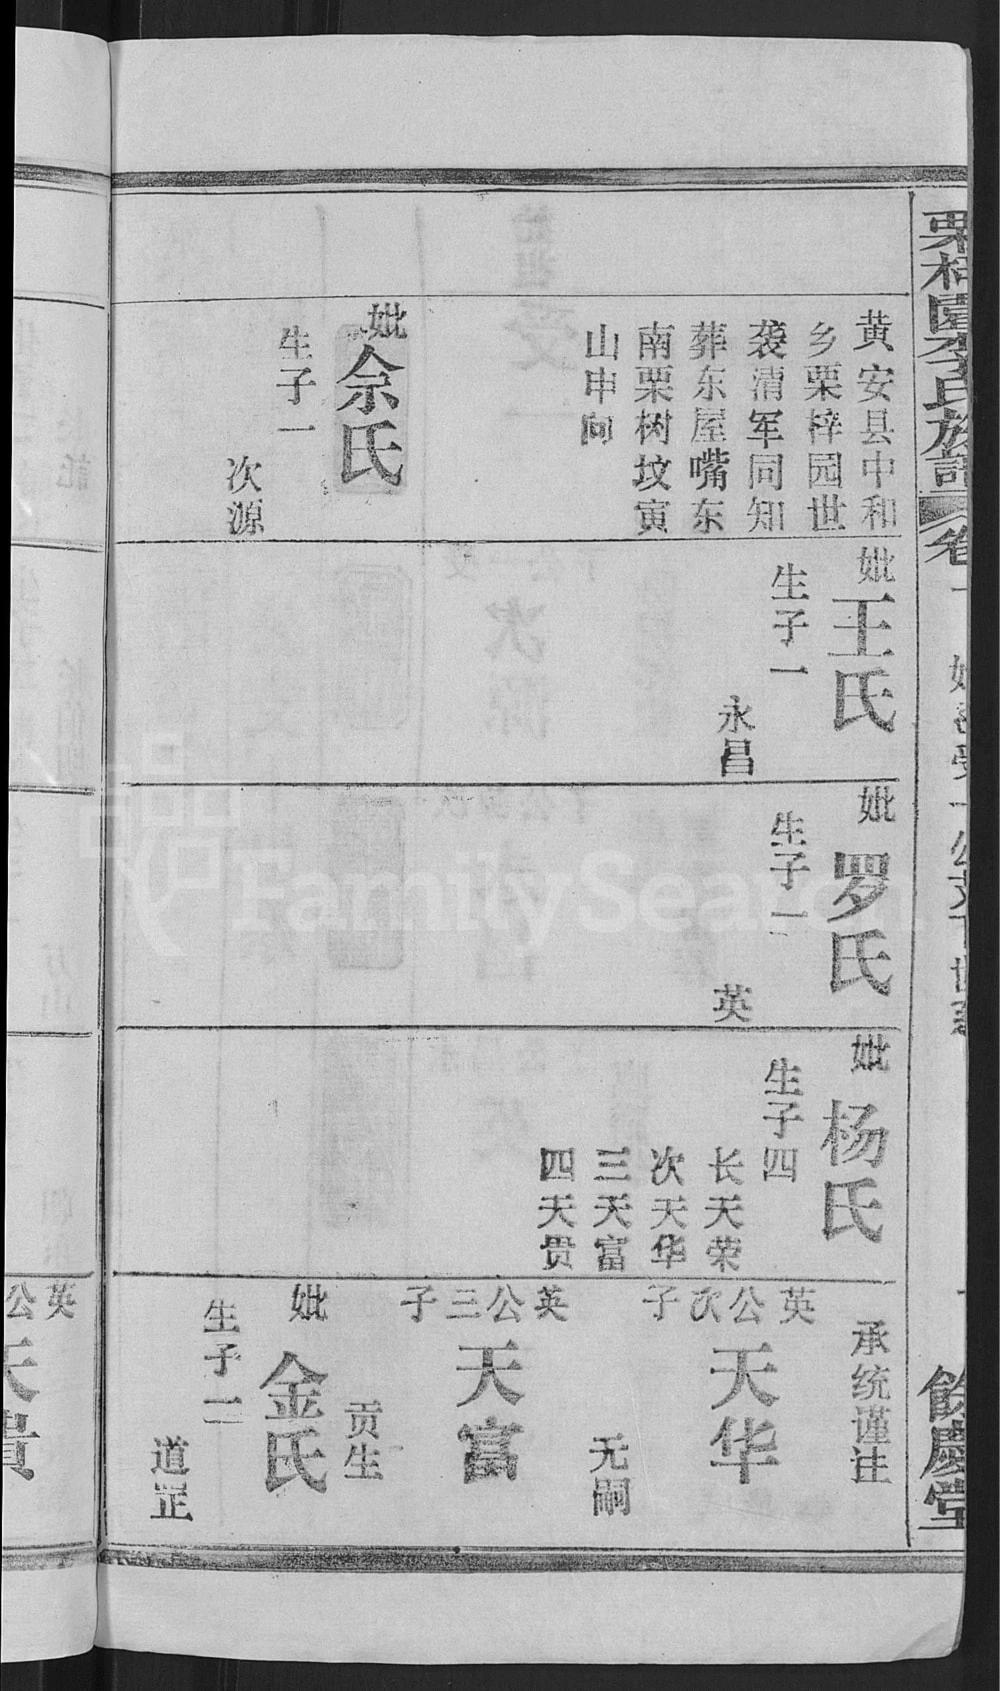 栗梓園李氏族譜
卷一
餘慶堂
黄安县中和
乡栗梓园世
袭清军同知
葬东屋嘴东
南栗树坟寅
山申向
妣佘氏
生子一
次源
妣王氏
生子一
永昌
妣罗氏
生子一
英
妣杨氏
生子四
长天荣
次天华
三天富
四天贵
承统谨注
英公次子
天华
无嗣
英公三子
天富
贡生
妣金氏
生子二
道正
英公
天貴
FamilySearch